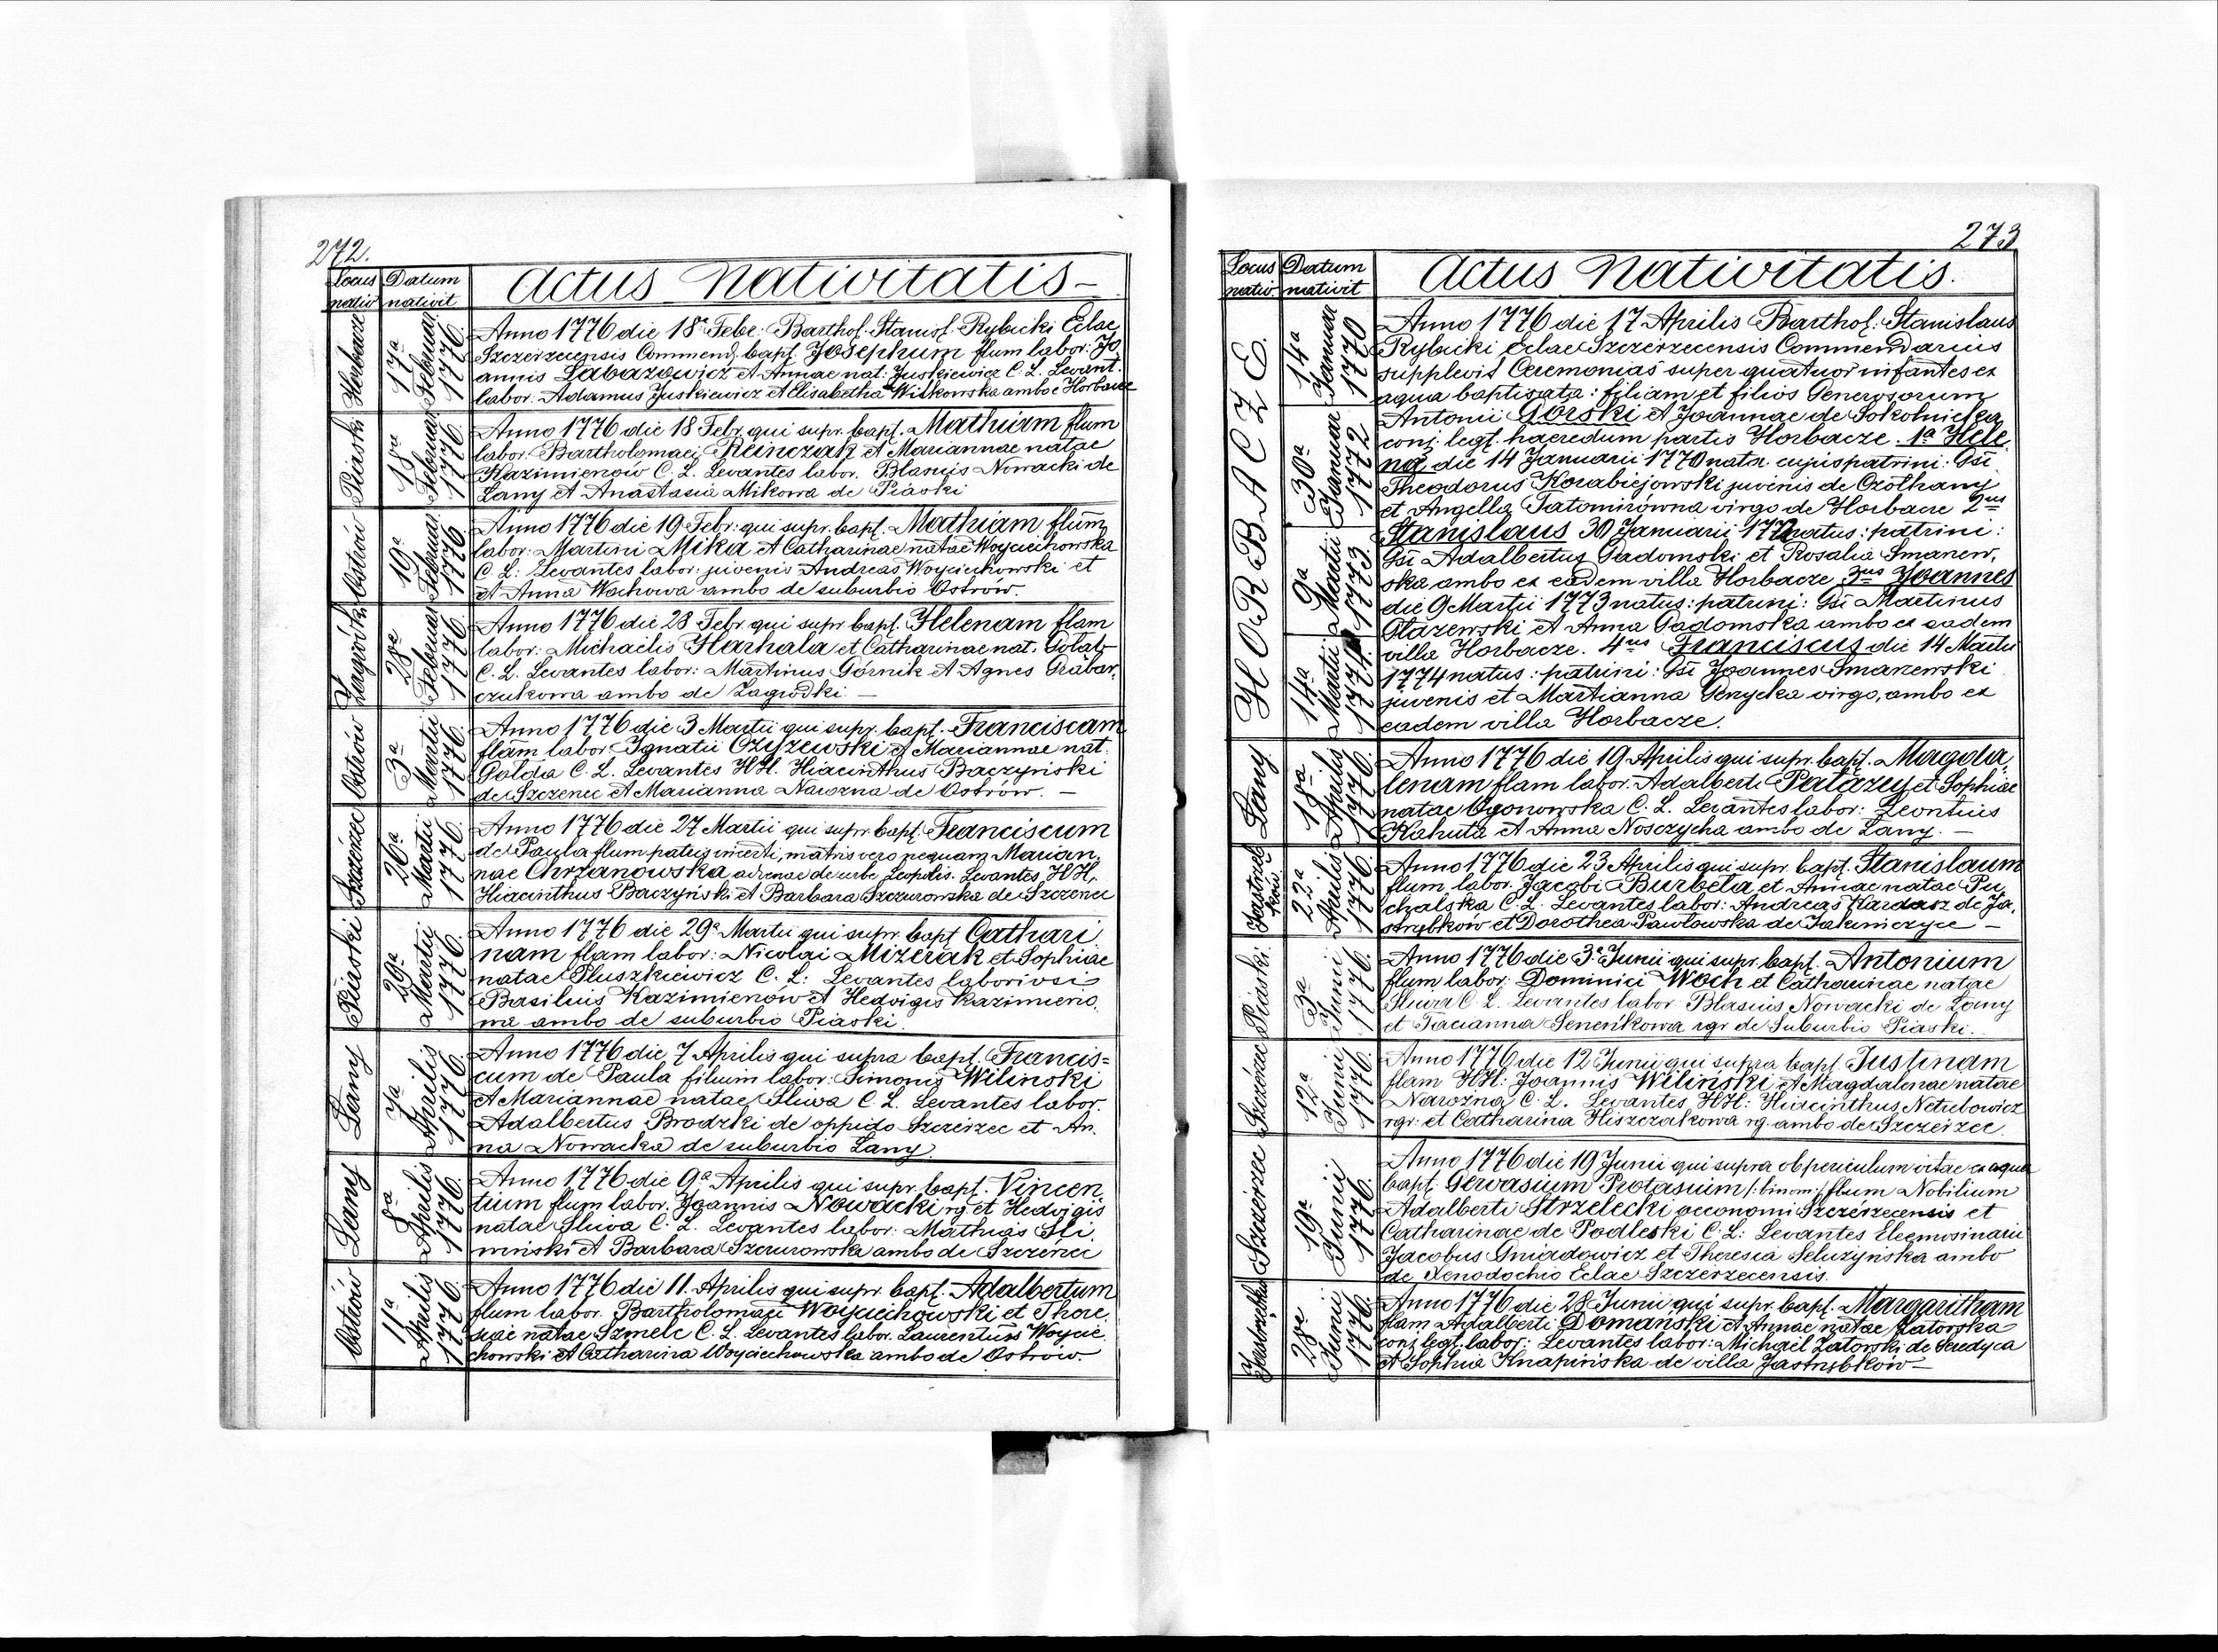 272.
Locus nativ
Datum nativit
Actus Nativitatis –
Horbacze
17a Februar 1776.
Anno 1776 die 18a Febr: Barthol. Stanisl. Rybicki Eclae
Szczerzecensis Commend. bapt. Josephum flum labor: Jo
annis Labazowicz et Annae nat: Juskiewicz C. L. Levant.
labor: Adamus Juskiewicz et Elisabetha Witkowska ambo e Horbacze
Piaski
18a Februar 1776.
Anno 1776 die 18 Febr. qui supr. bapt. Mathiam flum
labor: Bartholomaei Reinczak et Mariannae natae
Kazimierow C. L. Levantes labor. Blasius Nowacki de
Lany et Anastasia Mikowa de Piaski
Ostrów
19a Februar 1776
Anno 1776 die 19 Febr: qui supr. bapt. Mathiam flum
labor: Martini Mika et Catharinae natae Woyciechowska
C L: Levantes labor: juvenis Andreas Woyciechowski et
et Anna Wochowa ambo de suburbio Ostrów.
Zagródki
28ae Februar 1776.
Anno 1776 die 28 Febr qui supr bapt. Helenam flam
labor: Michaelis Harhala et Catharinae nat.
C. L. Levantes labor: Martinus Górnik et Agnes Grabar,
czukowa ambo de Zagrodki –
Ostrów
3a Martii 1776.
Anno 1776 die 3 Martii qui supr. bapt. Franciscam
flam labor Ignatii Czyzewski et Mariannae nat.
Golda C. L. Levantes HH. Hiacinthus Baczynski
de Szczerzec et Marianna Narozna de Ostrów. –
Szczerzec
26a Martii 1776.
Anno 1776 die 27 Martii qui supr. bapt. Franciscum
de Paula flum patris incerti, matris vero nequam Marian,
nae Chrzanowska advenae de urbe Leopolis. Levantes HH.
Hiacinthus Baczyński et Barbara Szczurowska de Szczerzec
Piaski
29a Martii 1776.
Anno 1776 die 29a Martii qui supr. bapt Cathari
nam flam labor: Nicolai Mizerak et Sophiae
natae Pluszkiewicz C. L: Levantes laboriosi
Basilius Kazimierów et Hedvigis Kazimiero,
wa ambo de suburbio Piaski.
Lany
7a Aprilis 1776.
Anno 1776 die 7 Aprilis qui supra bapt. Francis=
cum de Paula filium labor: Simonis Wilinski
et Mariannae natae Sliwa C. L. Levantes labor.
Adalbertus Brodzki de oppido Szczerzec et An.
na Nowacka de suburbio Lany.
Lany
8a Aprilis 1776.
Anno 1776 die 9a Aprilis qui supr. bapt. Vincen
tium flum labor. Joannis Nowacki rg et Hedvigis
natae Sliwa C. L. Levantes labor: Mathias Sli,
winski et Barbara Szczurowska ambo de Szczerzec
Ostrów
11a Aprilis 1776.
Anno 1776 die 11. Aprilis qui supr. bapt. Adalbertum
flum labor. Bartholomaei Woyciechowski et There,
siae natae Szmelc C. L. Levantes labor. Laurentius Woycie
chowski et Catharina Woyciechowska ambo de Ostrów.
273
Locus nativ
Datum nativit
Actus Nativitatis.
HORBACZE.
14a Januar 1770
30a Januar 1772
9a Martii 1773.
14a Martii 1774.
Anno 1776 die 17 Aprilis Barthol: Stanislaus
Rybicki Eclae Szczerzecensis Commendarius
supplevit Ceremonias super quatuor infantes ex
aqua baptisata: filiam et filios Generosorum
Antonii Gorski et Joannae de Sokolnicka
conj: legt. haeredum partis Horbacze. 1a Hele,
na die 14 Januarii 1770 nata cujus patrini: Gsi
Theodorus Korabiejowski juvenis de Czothany
et Angella Tatomirówna virgo de Horbacze 2us
Stanislaus 30 Januarii 1772 natus: patrini:
Gsi Adalbertus Padomski et Rosalia Smarzew,
ska ambo ex eadem villa Horbacze 3us Joannes
die 9 Martii 1773 natus: patrini: Gsi Martinus
Olazewski et Anna Padomska ambo ex eadem
villa Horbacze. 4us Franciscus die 14 Martii
1774 natus: patrini: Gsi Joannes Smarzewski
juvenis et Martianna Genycka virgo, ambo ex
eadem villa Horbacze.
Lany
18a Aprilis 1776.
Anno 1776 die 19 Aprilis qui supr. bapt. Magda,
lenam flam labor. Adalberti Patazey et Sophiae
natae Ogonowska C. L. Levantes labor: Leontius
Kahuta et Anna Nosczycha ambo de Lany. –
Jastrzęb kow
22a Aprilis 1776.
Anno 1776 die 23 Aprilis qui supr. bapt. Stanislaum
flum labor. Jacobi Burbeta et Annae natae Pu,
chalska C. L. Levantes labor: Andreas Kardasz de Ja,
strzębków et Dorothea Pawlowska de Jakimczyce –
Piaski
3a Junii 1776.
Anno 1776 die 3a Junii qui supr. bapt. Antonium
flum labor: Dominici Woch et Catharinae natae
Sliwa C. L. Levantes labor. Blasius Nowacki de Lany
et Tacianna Seneńkowa rgr de Suburbio Piaski.
Szczerzec
12a Junii 1776.
Anno 1776 die 12 Junii qui supra bapt. Justinam
flam HH: Joannis Wiliński et Magdalenae natae
Narozna C. L. Levantes HH: Hiacinthus Netrebowicz
rgr. et Catharina Hiszczakowa rg. ambo de Szczerzec.
Szczerzec
19a Junii 1776.
Anno 1776 die 19 Junii qui supra ob periculum vitae ex aqua
bapt. Gervasium Protasium /:binom:/ flum Nobilium
Adalberti Strzelecki oeconomi Szczerzecensis et
Catharinae de Podleski C. L: Levantes Eleemosinarii
Jacobus Gniadowicz et Theresia Seluzyńska ambo
de Xenodochio Eclae Szczerzecensis.
28ae Junii 1776.
Anno 1776 die 28 Junii qui supr. bapt. Margaritham
flam Adalberti Domański et Annae natae Zatorska
conj legt. labor: Levantes labor: Michael Zatorski de Seredyca
et Sophia Knapińska de villa Jastrzębków –